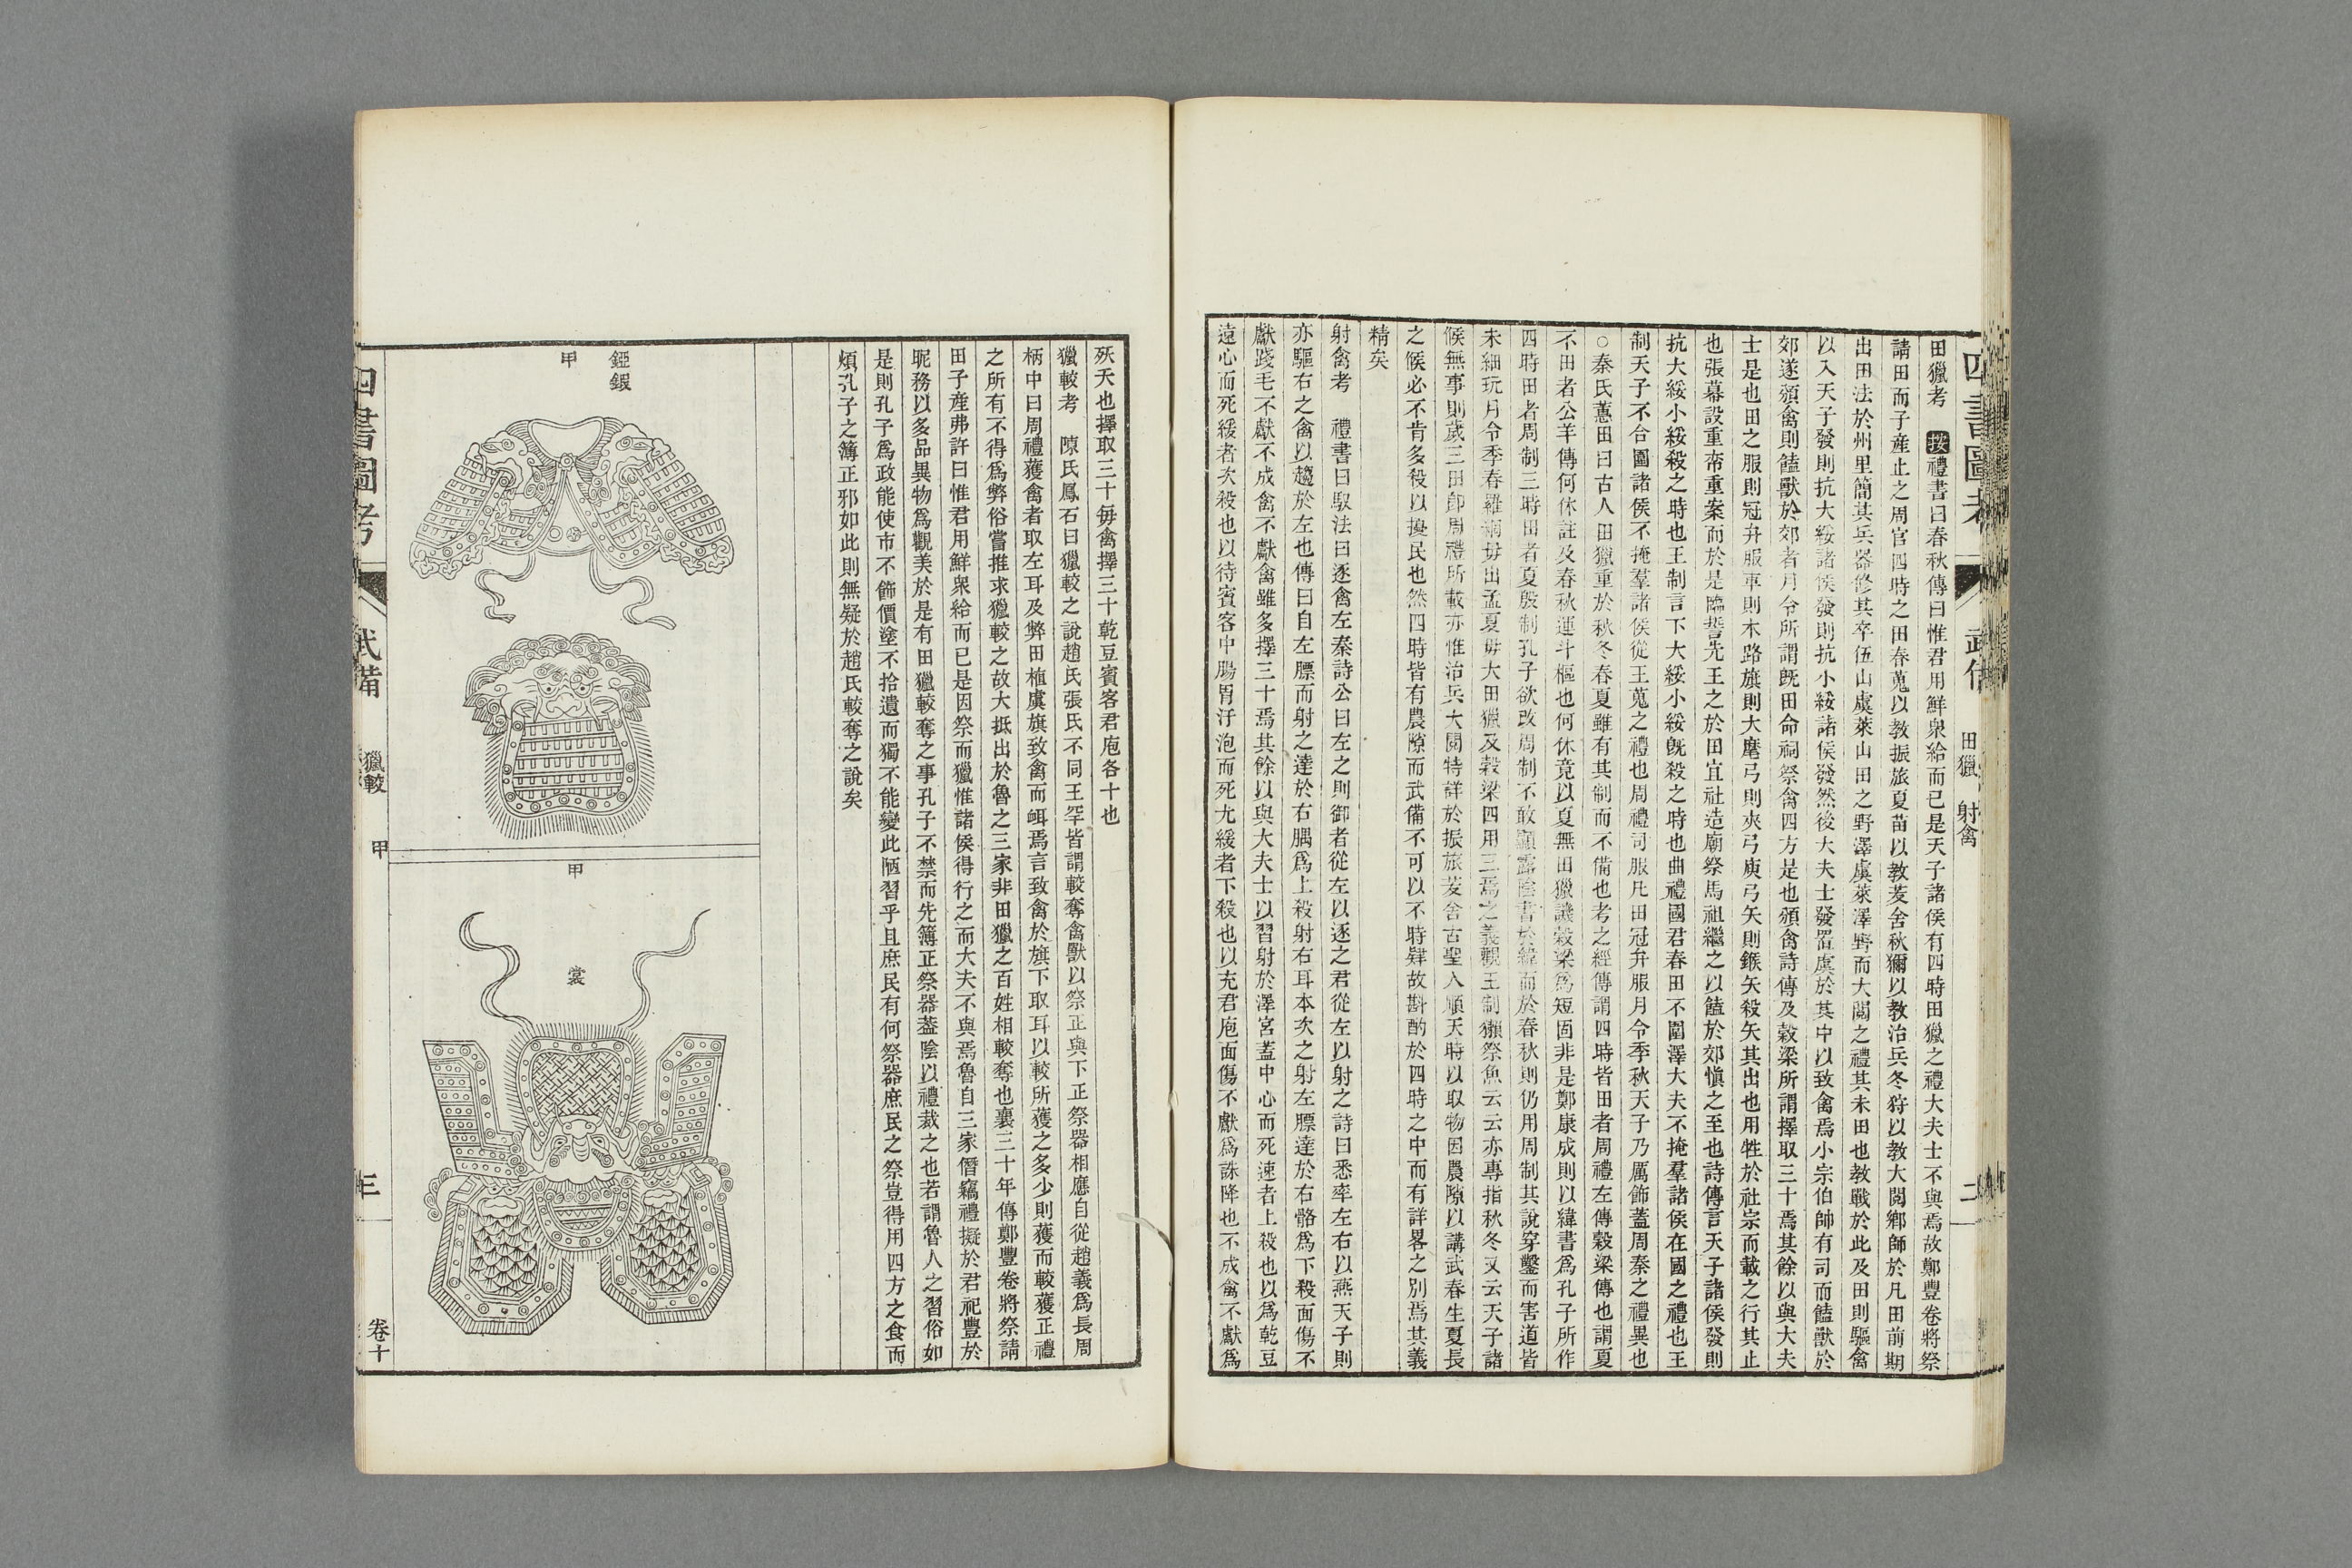 四書圖考
武備
田獵 射禽
二
田獵考 按禮書曰春秋傳曰惟君用鮮衆給而已是天子諸侯有四時田獵之禮大夫士不與焉故鄭豐卷將祭
請田而子產止之周官四時之田春蒐以教振旅夏苗以教茇舍秋獮以教治兵冬狩以教大閱鄉師於凡田前期
出田法於州里簡其兵器修其卒伍山虞萊山田之野澤虞萊澤野而大閱之禮其未田也教戰於此及田則驅禽
以入天子發則抗大綏諸侯發則抗小綏諸侯發然後大夫士發置虞於其中以致禽焉小宗伯帥有司而饁獸於
郊遂頒禽則饁獸於郊者月令所謂既田命祠祭禽四方是也頒禽詩傳及穀梁所謂擇取三十焉其餘以與大夫
士是也田之服則冠弁服車則木路旗則大麾弓則夾弓庾弓矢則鍭矢殺矢其出也用牲於社宗而載之行其止
也張幕設重帟重案而於是臨誓先王之於田宜社造廟祭馬祖繼之以饁於郊愼之至也詩傳言天子諸侯發則
抗大綏小綏殺之時也王制言下大綏小綏既殺之時也曲禮國君春田不圍澤大夫不掩羣諸侯在國之禮也王
制天子不合圍諸侯不掩羣諸侯從王蒐之禮也周禮司服凡田冠弁服月令季秋天子乃厲飾蓋周秦之禮異也
○秦氏蕙田曰古人田獵重於秋冬春夏雖有其制而不備也考之經傳謂四時皆田者周禮左傳穀梁傳也謂夏
不田者公羊傳何休註及春秋運斗樞也何休竟以夏無田獵譏穀梁爲短固非是鄭康成則以緯書爲孔子所作
四時田者周制三時田者夏殷制孔子欲改周制不敢顯露陰書於緯而於春秋則仍用周制其說穿鑿而害道皆
未細玩月令季春羅罔毋出孟夏毋大田獵及穀梁四用三焉之義觀王制獺祭魚云云亦專指秋冬又云天子諸
候無事則歲三田卽周禮所載亦惟治兵大閱特詳於振旅茇舍古聖人順天時以取物因農隙以講武春生夏長
之候必不肯多殺以擾民也然四時皆有農隙而武備不可以不時肄故斟酌於四時之中而有詳畧之別焉其義
精矣
射禽考 禮書曰馭法曰逐禽左秦詩公曰左之則御者從左以逐之君從左以射之詩曰悉率左右以燕天子則
亦驅右之禽以趨於左也傳曰自左膘而射之達於右腢爲上殺射右耳本次之射左髀達於右䯚爲下殺面傷不
獻踐毛不獻不成禽不獻禽雖多擇三十焉其餘以與大夫士以習射於澤宮蓋中心而死速者上殺也以爲乾豆
遠心而死緩者次殺也以待賓客中腸胃汙泡而死尤緩者下殺也以充君庖面傷不獻爲誅降也不成禽不獻爲
殀夭也擇取三十毎禽擇三十乾豆賓客君庖各十也
獵較考 陳氏鳳石曰獵較之說趙氏張氏不同王罕皆謂較奪禽獸以祭正與下正祭器相應自從趙義爲長周
柄中曰周禮獲禽者取左耳及弊田植虞旗致禽而衈焉言致禽於旗下取耳以較所獲之多少則獲而較獲正禮
之所有不得爲弊俗嘗推求獵較之故大抵出於魯之三家非田獵之百姓相較奪也襄三十年傳鄭豐卷將祭請
田子產弗許曰惟君用鮮衆給而已是因祭而獵惟諸侯得行之而大夫不與焉魯自三家僭竊禮擬於君祀豐於
昵務以多品異物爲觀美於是有田獵較奪之事孔子不禁而先簿正祭器蓋陰以禮裁之也若謂魯人之習俗如
是則孔子爲政能使市不飾價塗不拾遺而獨不能變此陋習乎且庶民有何祭器庶民之祭豈得用四方之食而
煩孔子之簿正邪如此則無疑於趙氏較奪之說矣
錏鍜
甲
甲
裳
四書圖考
武備
獵較 甲
三
卷十